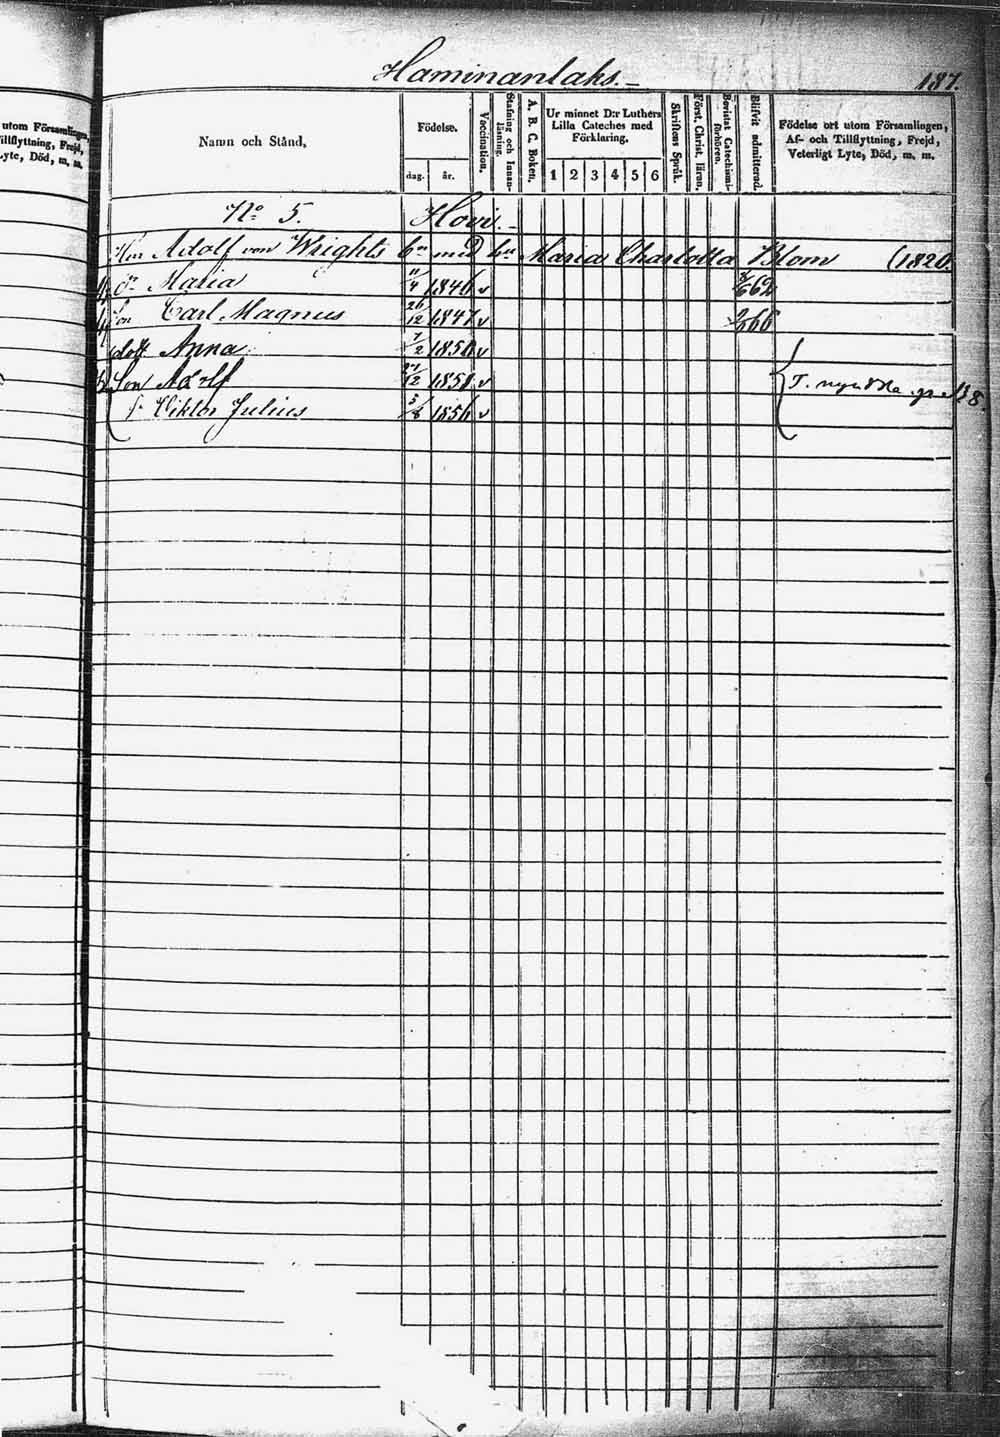 Haminanlaks.
187.
utom Församlingen,
illflyttning, Frejd,
yte, Död, m. m.
Namn och Stånd,
Födelse.
dag.
år.
Vaccination.
Stafning och Innan-
läsning.
A. B. C. Boken.
Ur minnet D:r Luthers
Lilla Cateches med
Förklaring.
1 2 3 4 5 6
Skriftens Språk.
Först. Christ. läran.
Bevistat Catechismi-
förhören.
Blifvit admitterad.
Födelse ort utom Församlingen,
Af- och Tillflyttning, Frejd,
Veterligt Lyte, Död, m. m.
No 5. Hovi.
Adolf von Wrights med Maria Charlotta Blom (1820.
Maria 11/4 1846 v 62
Carl Magnus 26/12 1847 v 66
dott Anna 1/2 1850 v
Son Adolf 27/12 1851 v
Viktor Julius 3/8 1856 v
T. nya B.